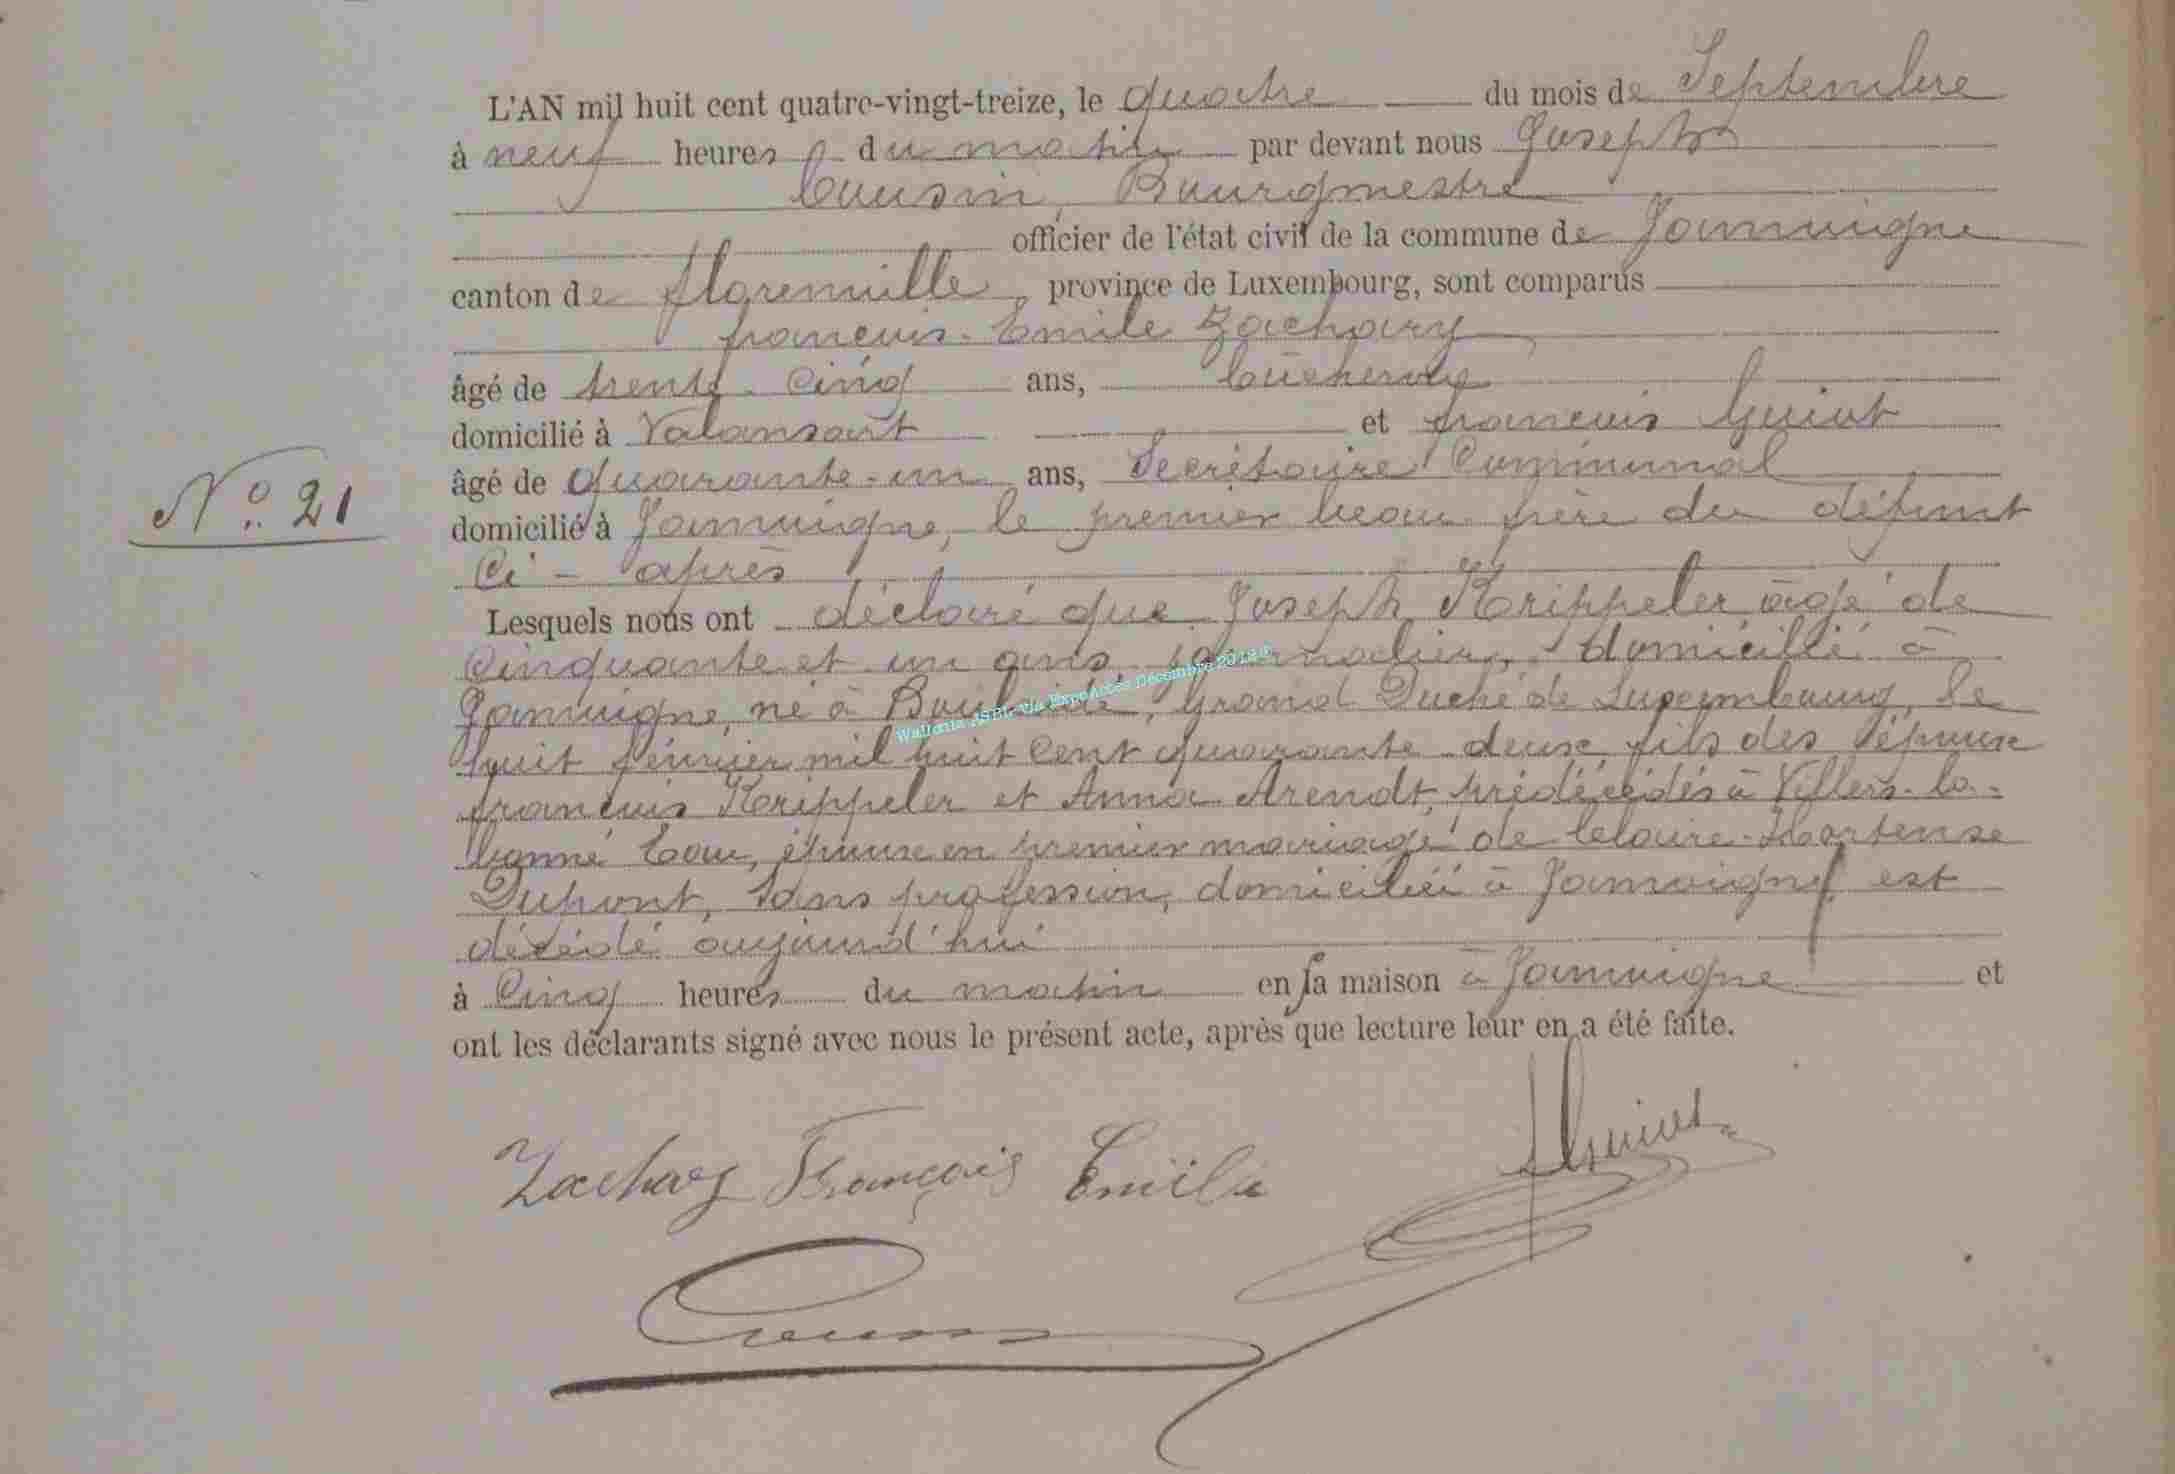 L'AN mil huit cent quatre-vingt-treize, le quatre du mois de Septembre
à neuf heures du matin par devant nous Joseph
Cousin, Bourgmestre
officier de l'état civil de la commune de Jamoigne
canton de Florenville, province de Luxembourg, sont comparus
françois-Emile Zachary
âgé de trente-cinq ans,
domicilié à Valansart et françois Guiot
âgé de quarante-un ans, Secrétaire Communal
N° 21
domicilié à Jamoigne, le premier beau-frère du défunt
Ci-après
Lesquels nous ont déclaré que Joseph Krippeler âgé de
Cinquante et un ans, journalier, domicilié à
Jamoigne, né à Boulaide, Grand Duché de Luxembourg, le
huit février mil huit cent quarante-deux, fils des époux
françois Krippeler et Anna Arendt, prédécédés à Villers-la-
bonne Eau, époux en premier mariage de Claire-Hortense
Dupont, sans profession, domiciliée à Jamoigne, est
décédé aujourd'hui
à Cinq heures du matin en sa maison à Jamoigne et
ont les déclarants signé avec nous le présent acte, après que lecture leur en a été faite.
Wallonia ASBL via ExpoActes Décembre 2012 ©
Zachary François Emile
Guiot
Cousin